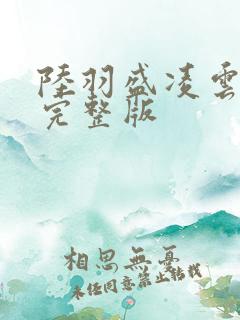 陸羽盛凌雲
完整版
相思無憂
未經同意禁止轉載